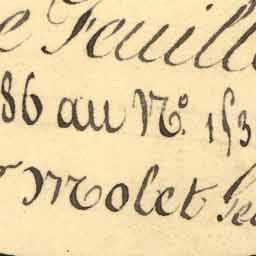 e Feuill
86 au N.º 153
r Molet Ge